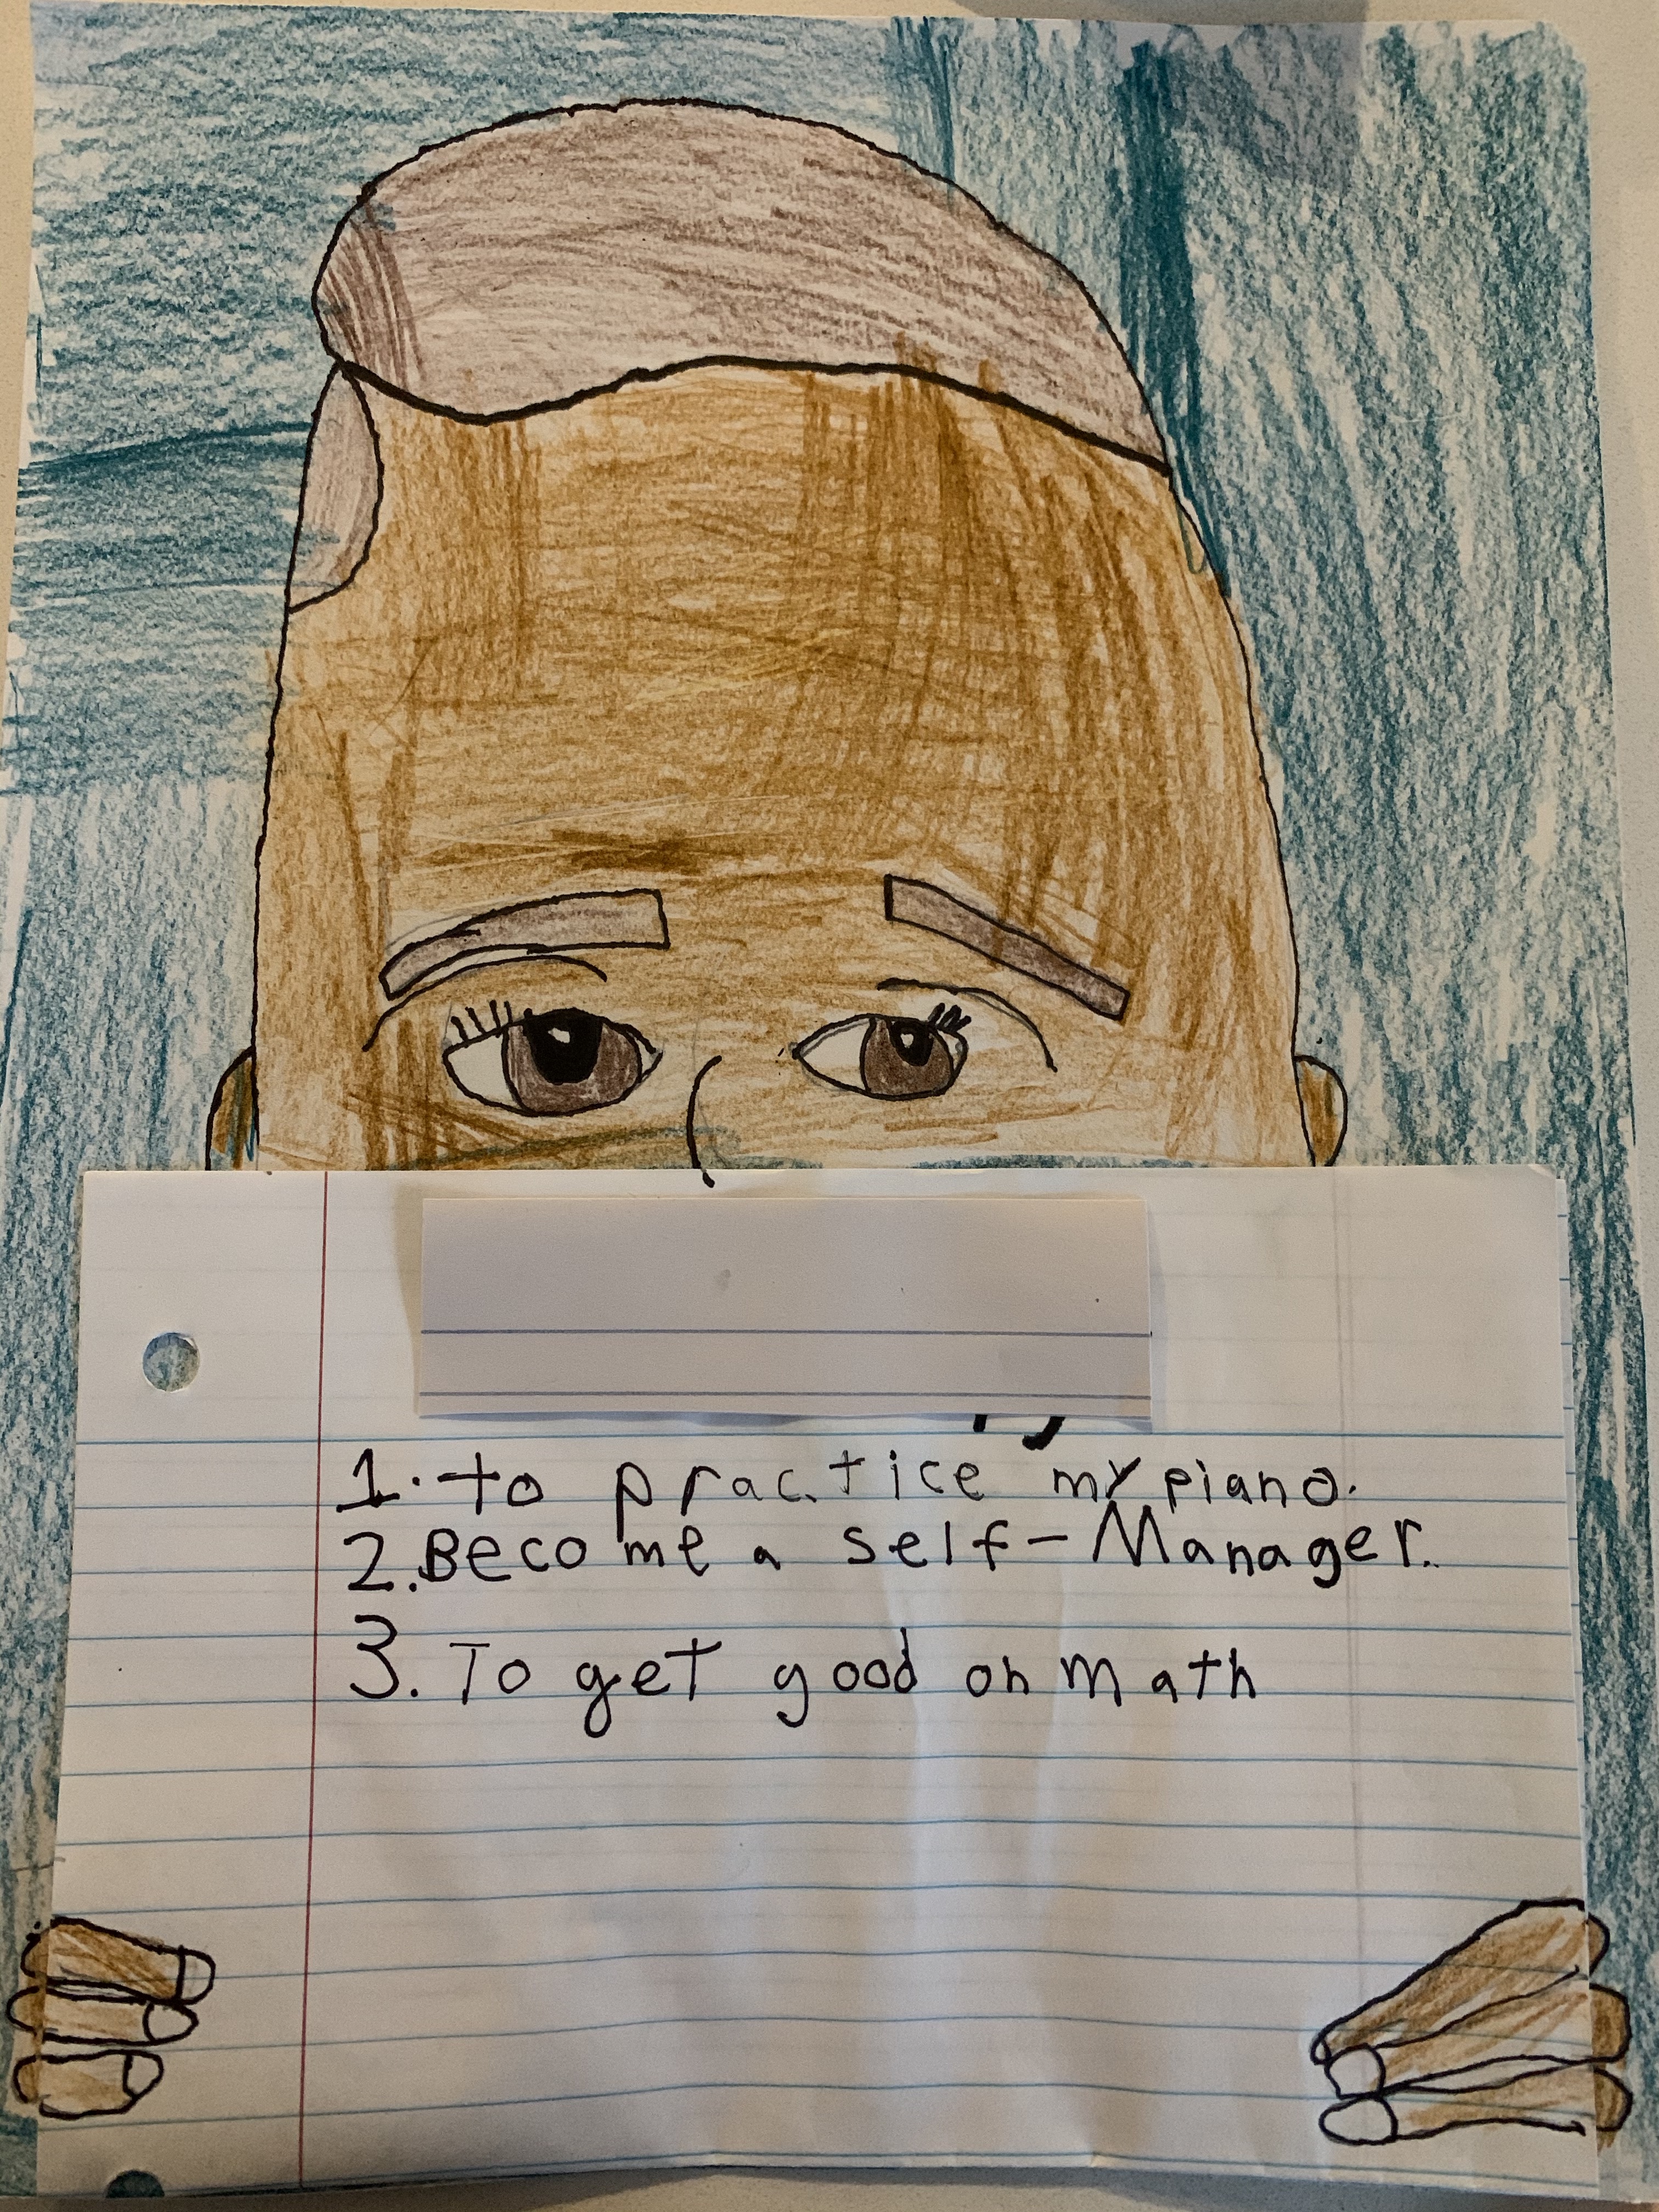 1. to practice my piano.
2. Become a self-Manager.
3. To get good on math